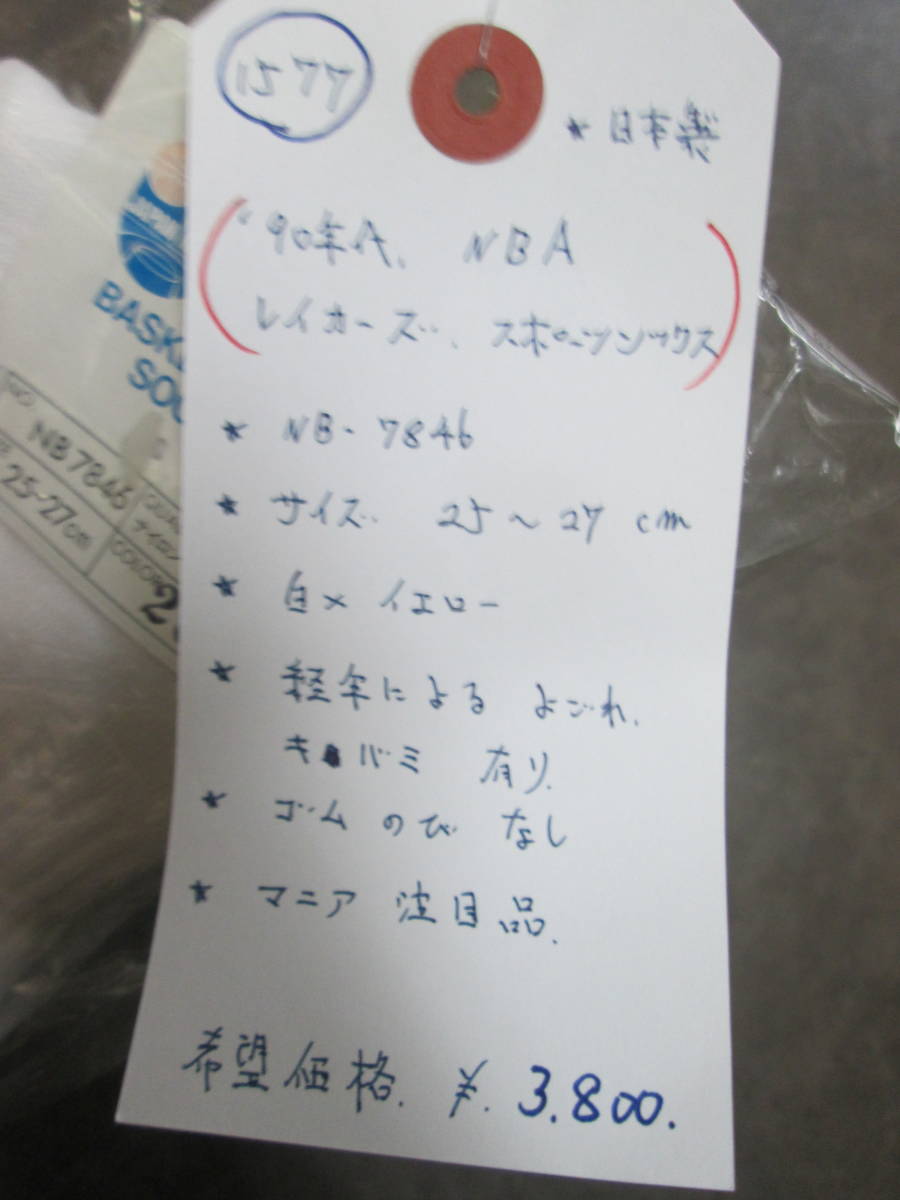 1577
* 日本製
'90年代、 NBA
レイカーズ、スポーツソックス
* NB-7846
* サイズ 25～27 cm
* 白×イエロー
* 経年による よごれ、
キバミ 有り.
* ゴム のび なし
* マニア 注目品.
希望価格. ¥. 3.800.
BASK
SO
NB7846
25~27cm
ナイロン
COLOR
2